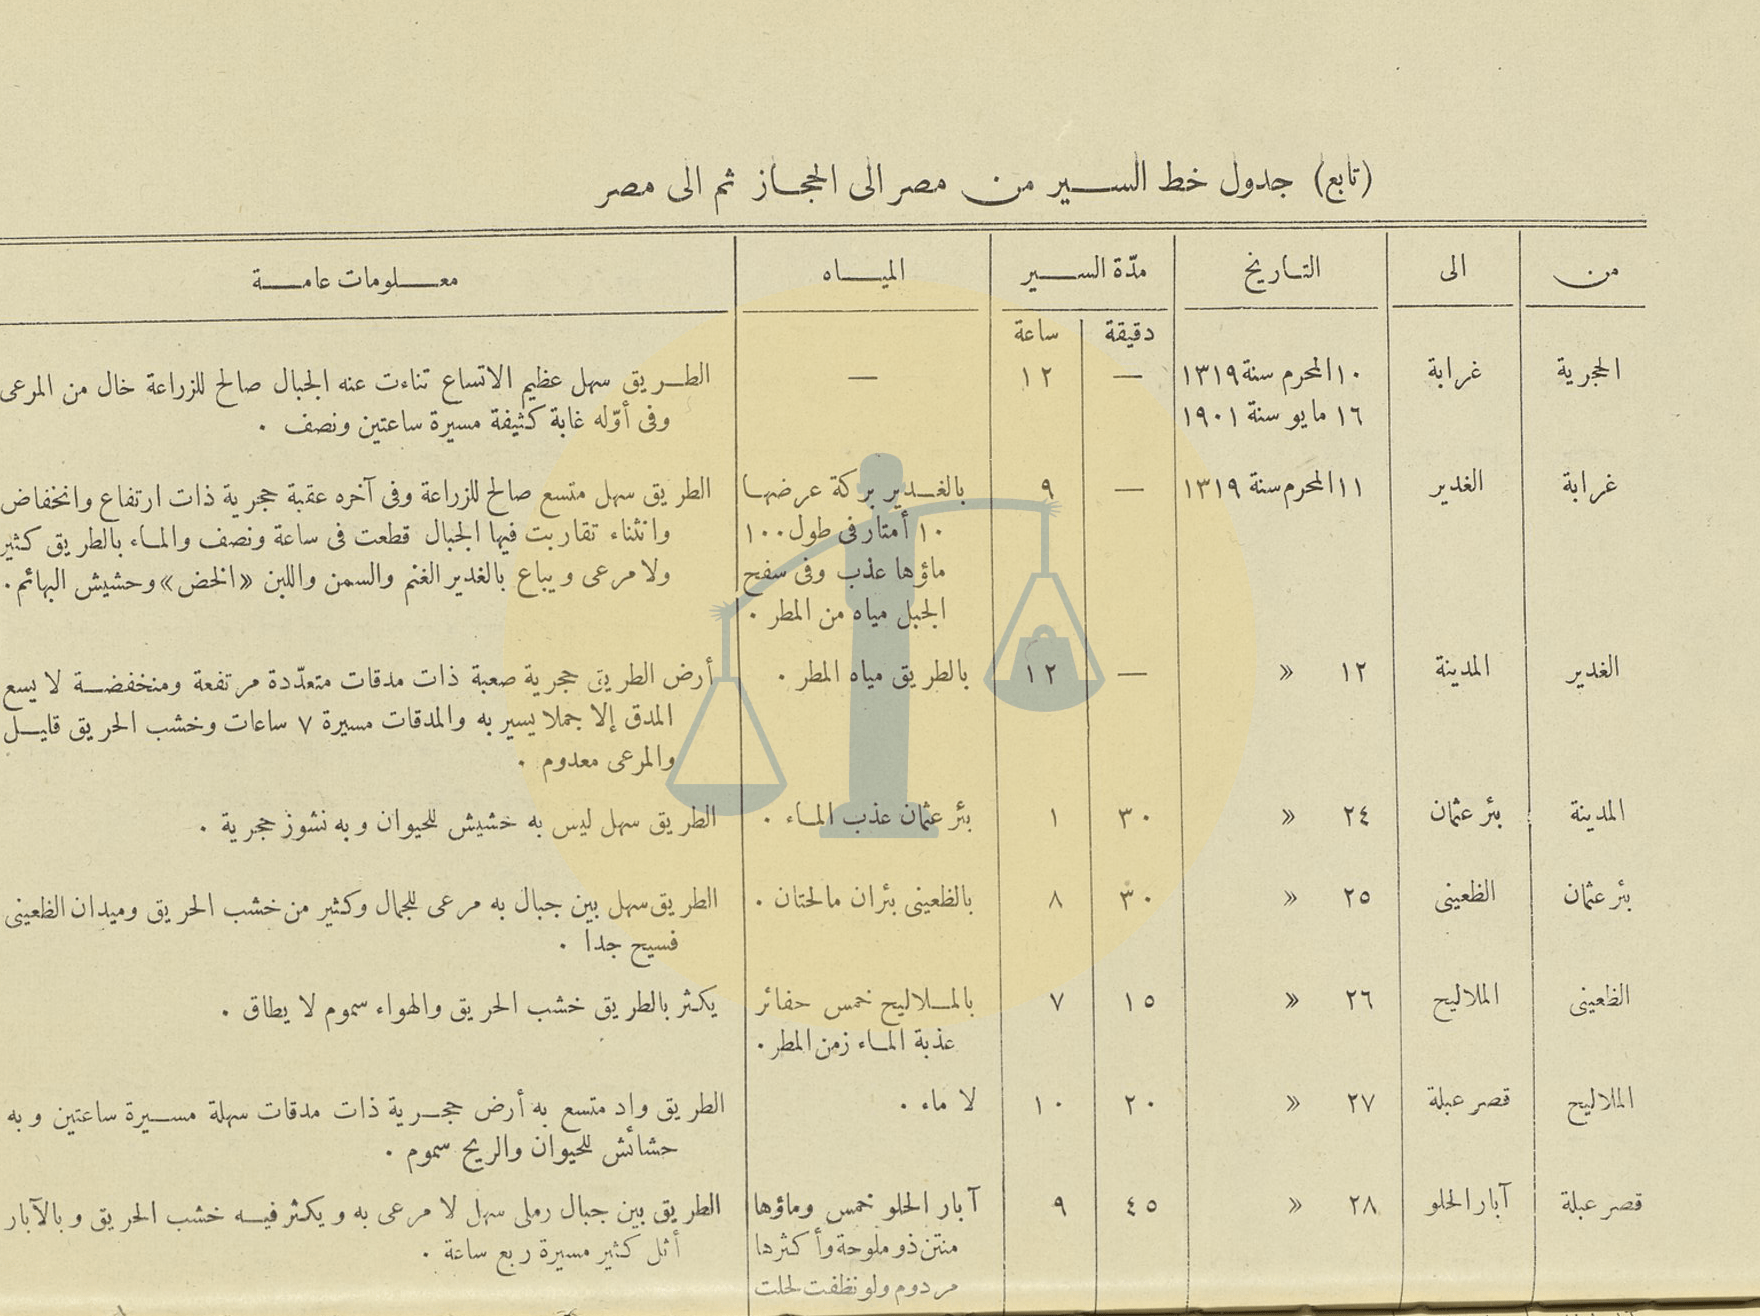 (تابع) جدول خط السير من مصر الى الحجاز ثم الى مصر
من الى التاريخ مدّة السير المياه معلومات عامة
دقيقة ساعة
الحجرية غرابة ١٠ المحرم سنة ١٣١٩ — ١٢ — الطريق سهل عظيم الاتساع تناءت عنه الجبال صالح للزراعة خال من المرعى
١٦ مايو سنة ١٩٠١ وفى أوّله غابة كثيفة مسيرة ساعتين ونصف .
غرابة الغدير ١١ المحرم سنة ١٣١٩ — ٩ بالغدير بركة عرضها الطريق سهل متسع صالح للزراعة وفى آخره عقبة حجرية ذات ارتفاع وانخفاض
١٠ أمتار فى طول ١٠٠ وانثناء تقاربت فيها الجبال قطعت فى ساعة ونصف والماء بالطريق كثير
ماؤها عذب وفى سفح ولا مرعى ويباع بالغدير الغنم والسمن واللبن «الخض» وحشيش البهائم .
الجبل مياه من المطر .
الغدير المدينة ١٢ » — ١٢ بالطريق مياه المطر . أرض الطريق حجرية صعبة ذات مدقات متعدّدة مرتفعة ومنخفضة لا يسع
المدق إلا جملا يسير به والمدقات مسيرة ٧ ساعات وخشب الحريق قليل
والمرعى معدوم .
المدينة بئر عثمان ٢٤ » ٣٠ ١ بئر عثمان عذب الماء . الطريق سهل ليس به حشيش للحيوان وبه نشوز حجرية .
بئر عثمان الظعينى ٢٥ » ٣٠ ٨ بالظعينى بئران مالحتان . الطريق سهل بين جبال به مرعى للجمال وكثير من خشب الحريق وميدان الظعينى
فسيح جدا .
الظعينى الملاليح ٢٦ » ١٥ ٧ بالملاليح خمس حفائر يكثر بالطريق خشب الحريق والهواء سموم لا يطاق .
عذبة الماء زمن المطر .
الملاليح قصر عبلة ٢٧ » ٢٠ ١٠ لا ماء . الطريق واد متسع به أرض حجرية ذات مدقات سهلة مسيرة ساعتين وبه
حشائش للحيوان والريح سموم .
قصر عبلة آبار الحلو ٢٨ » ٤٥ ٩ آبار الحلو خمس وماؤها الطريق بين جبال رملى سهل لا مرعى به ويكثر فيه خشب الحريق وبالآبار
منتن ذو ملوحة وأكثرها أثل كثير مسيرة ربع ساعة .
مردوم ولو نظفت لحلت